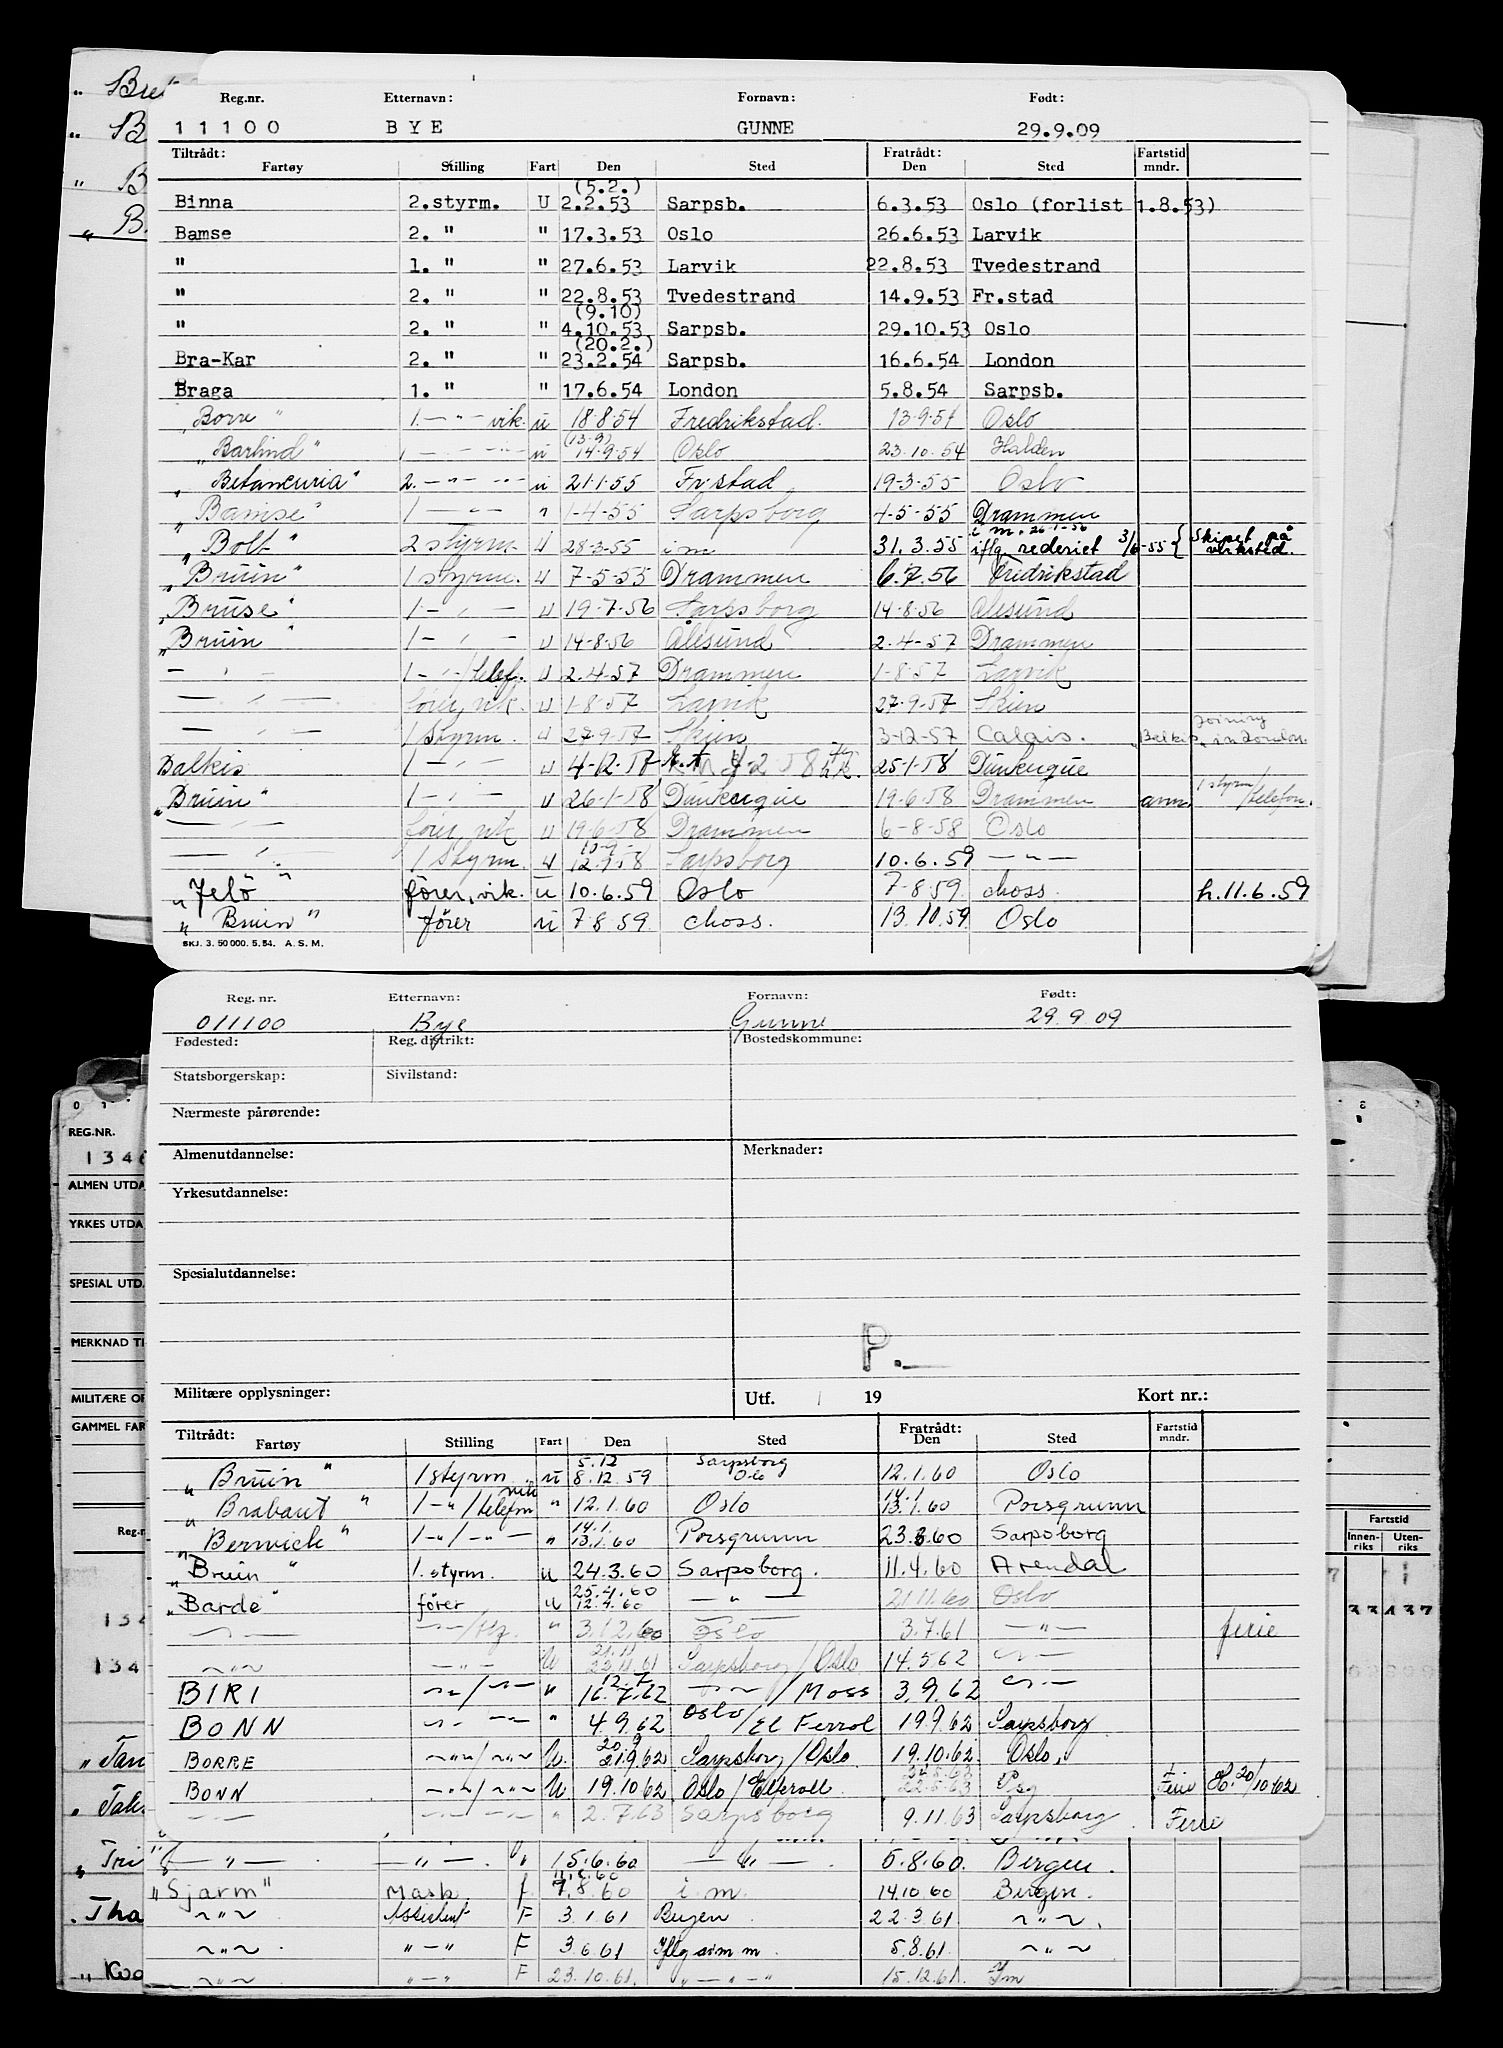 Reg.nr. Etternavn: Fornavn: Født:
11100 BYE GUNNE 29.9.09
Tiltrådt: Fratrådt: Fartstid
Fartøy Stilling Fart Den Sted Den Sted mndr.
(5.2.)
Binna 2.styrm. U 2.2.53 Sarpsb. 6.3.53 Oslo (forlist 1.8.53)
Bamse 2. " " 17.3.53 Oslo 26.6.53 Larvik
" 1. " " 27.6.53 Larvik 22.8.53 Tvedestrand
" 2. " " 22.8.53 Tvedestrand 14.9.53 Fr.stad
(9.10)
" 2. " " 4.10.53 Sarpsb. 29.10.53 Oslo
(20.2.)
Bra-Kar 2. " " 23.2.54 Sarpsb. 16.6.54 London
Braga 1. " " 17.6.54 London 5.8.54 Sarpsb.
"Borre" 1. - " - vik. u 18.8.54 Fredrikstad. 13.9.54 Oslo
(13.9)
"Barlind" 1 - " - " - u 14.9.54 Oslo 23.10.54 Halden
"Betancuria" 2. - " - " - u 21.1.55 Fr.stad 19-3-55 Oslo
"Bamse" 1 - " - " 1-4-55 Sarpsborg 4-5-55 Drammen
i m. 26-1-56
"Bolt" 2 styrm. u 28-3-55 i m 31.3.55 iflg. rederiet 3/6-55 { Skipet på verksted.
"Bruin" 1 styrm. u 7-5-55 Drammen 6.7.56 Fredrikstad
"Bruse" 1 - " - u 19-7-56 Sarpsborg 14-8-56 Ålesund
"Bruin" 1 - " - u 14-8-56 Ålesund 2.4-57 Drammen
- " - 1 - " -/telef. u 2.4-57 Drammen 1-8-57 Larvik
- " - fører, vik. u 1-8-57 Larvik 27-9-57 Skien
- " - 1 styrm. u 27-9-57 Skien 3-12-57 Calais. "Balkis" joining in London.
Balkis 1 - " - u 4-12-57 25-1-58 Dunkerque
"Bruin" 1 - " - u 26-1-58 Dunkerque 19-6-58 Drammen anm. 1 styrm/telefon.
- " - fører, vik u 19-6-58 Drammen 6-8-58 Oslo
- " - 1 styrm. u 12.9.58 Sarpsborg 10.6.59 - " -
"Jelö" fører, vik. u 10.6.59 Oslo 7-8 59. Moss. h. 11.6.59
"Bruin" fører u 7 8 59. Moss. 13.10.59 Oslo
SKJ. 3. 50 000. 5.54. A.S.M.
Reg. nr. Etternavn: Fornavn: Født:
011100 Bye Gunne 29.9.09
Fødested: Reg. distrikt: Bostedskommune:
Statsborgerskap: Sivilstand:
Nærmeste pårørende:
Almenutdannelse: Merknader:
Yrkesutdannelse:
Spesialutdannelse:
P.
Militære opplysninger: Utf. / 19 Kort nr.:
Tiltrådt: Fratrådt: Fartstid
Fartøy Stilling Fart Den Sted Den Sted mndr.
5.12 Sarpsborg
"Bruin" 1 styrm u 8.12.59 Oslo 12.1.60 Oslo
vik 14.1
"Brabant" 1 - " /telefon " 12.1.60 Oslo 13.1.60 Porsgrunn
14.1.
"Berwick" 1 - " / - " - " 13.1.60 Porsgrunn 23.3.60 Sarpsborg
"Bruin" 1. styrm. u 24.3.60 Sarpsborg. 11.4.60 Arendal
25.4.60
"Barde" fører u 12.4.60 - " - 21 11.60 Oslo
- " - " 3.12.60 Oslo 3.7.61 - " - ferie
21.11
- " - - " - U 23.11.61 Sarpsborg/Oslo 14.5.62 - " -
12.7
BIRI - " - / - " - " 16.7.62 - " - / Moss 3.9.62 - " -
BONN - " - - " - " 4.9.62 Oslo/El Ferrol 19.9.62 Sarpsborg
20.9
BORRE - " - / - " - U. 21.9.62 Sarpsborg/Oslo 19.10.62 Oslo.
BONN - " - / - " - U 19.10.62 Oslo / 22.5.63 Psg Ferie H. 20/10.62
- " - - " - " 2.7.63 Sarpsborg 9.11.63 Sarpsborg Ferie
- " - - " - . " 15.6.60 - " - . 5.8.60. Bergen.
"Sjarm" Mask. f. 7.8.60 i m. 14.10.60 Bergen.
- " - Assistent F 3.1.61 Bergen 22.3.61 - " - .
- " - " - " F 3.6.61 Iflg sim m. 5.8.61. - " -
- " - " - " F 23.10.61. " - " - " 15.12.61. Im
REG.NR.
ALMEN UTDA
YRKES UTDA
SPESIAL UTD.
MERKNAD TI
MILITÆRE OP
GAMMEL FAR
Reg.n
Fartstid
Innen-riks Uten-riks